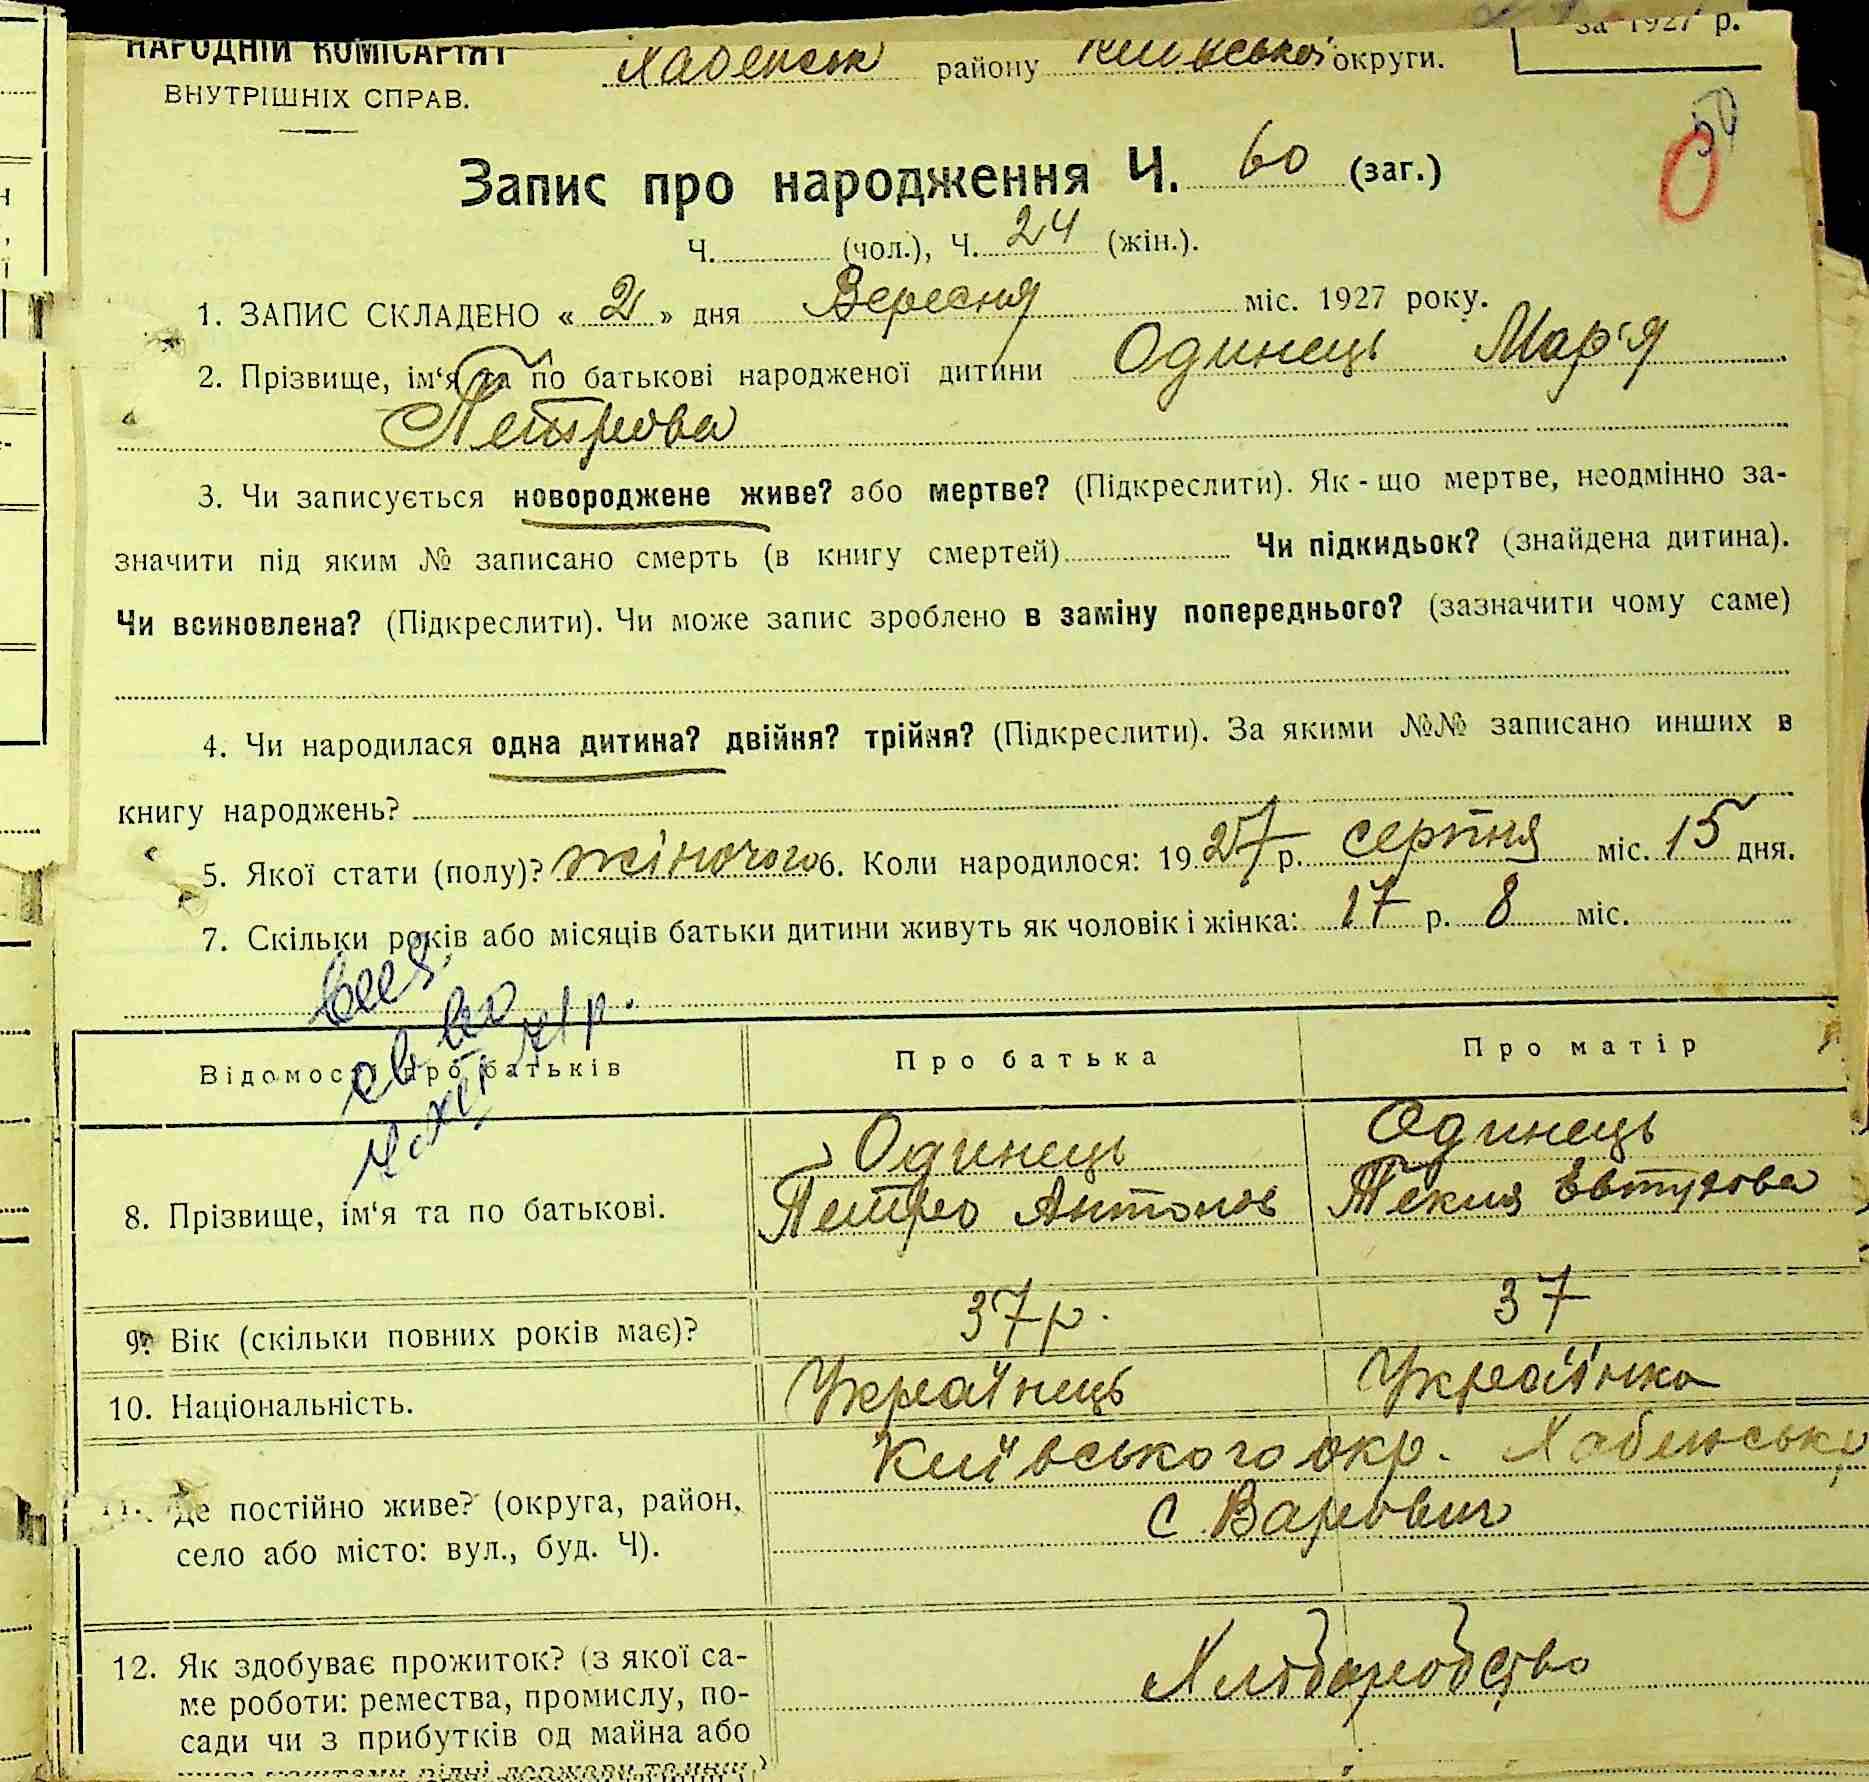 НАРОДНІЙ КОМІСАРІЯТ
ВНУТРІШНІХ СПРАВ.
Хабенськ району Київської округи.
за 1927 р.
Запис про народження Ч. 60 (заг.)
Ч. (чол.), Ч. 24 (жін.).
1. ЗАПИС СКЛАДЕНО « 2 » дня Вересня міс. 1927 року.
2. Прізвище, ім‘я та по батькові народженої дитини Одинець Мар'я
Петрова
3. Чи записується новороджене живе? або мертве? (Підкреслити). Як - що мертве, неодмінно за-
значити під яким № записано смерть (в книгу смертей) Чи підкидьок? (знайдена дитина).
Чи всиновлена? (Підкреслити). Чи може запис зроблено в заміну попереднього? (зазначити чому саме)
4. Чи народилася одна дитина? двійня? трійня? (Підкреслити). За якими №№ записано инших в
книгу народжень?
5. Якої стати (полу)? жіночого 6. Коли народилося: 1927 р. серпня міс. 15 дня.
7. Скільки років або місяців батьки дитини живуть як чоловік і жінка: 17 р. 8 міс.
Відомості про батьків Про батька Про матір
Одинець Одинець
8. Прізвище, ім‘я та по батькові. Петро Антонов Текля Евтухова
9. Вік (скільки повних років має)? 37 р. 37
10. Національність. Українець Українка
Київського окр. Хабенськ
11. Де постійно живе? (округа, район, с Варович
село або місто: вул., буд. Ч).
12. Як здобуває прожиток? (з якої са- Хліборобство
ме роботи: ремества, промислу, по-
сади чи з прибутків од майна або